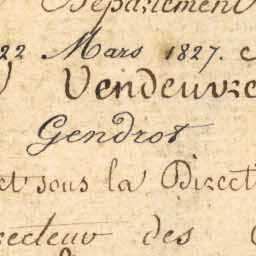 Département
22 Mars 1827.
Vendeuvre
Gendrot
et sous la Direct
recteur des